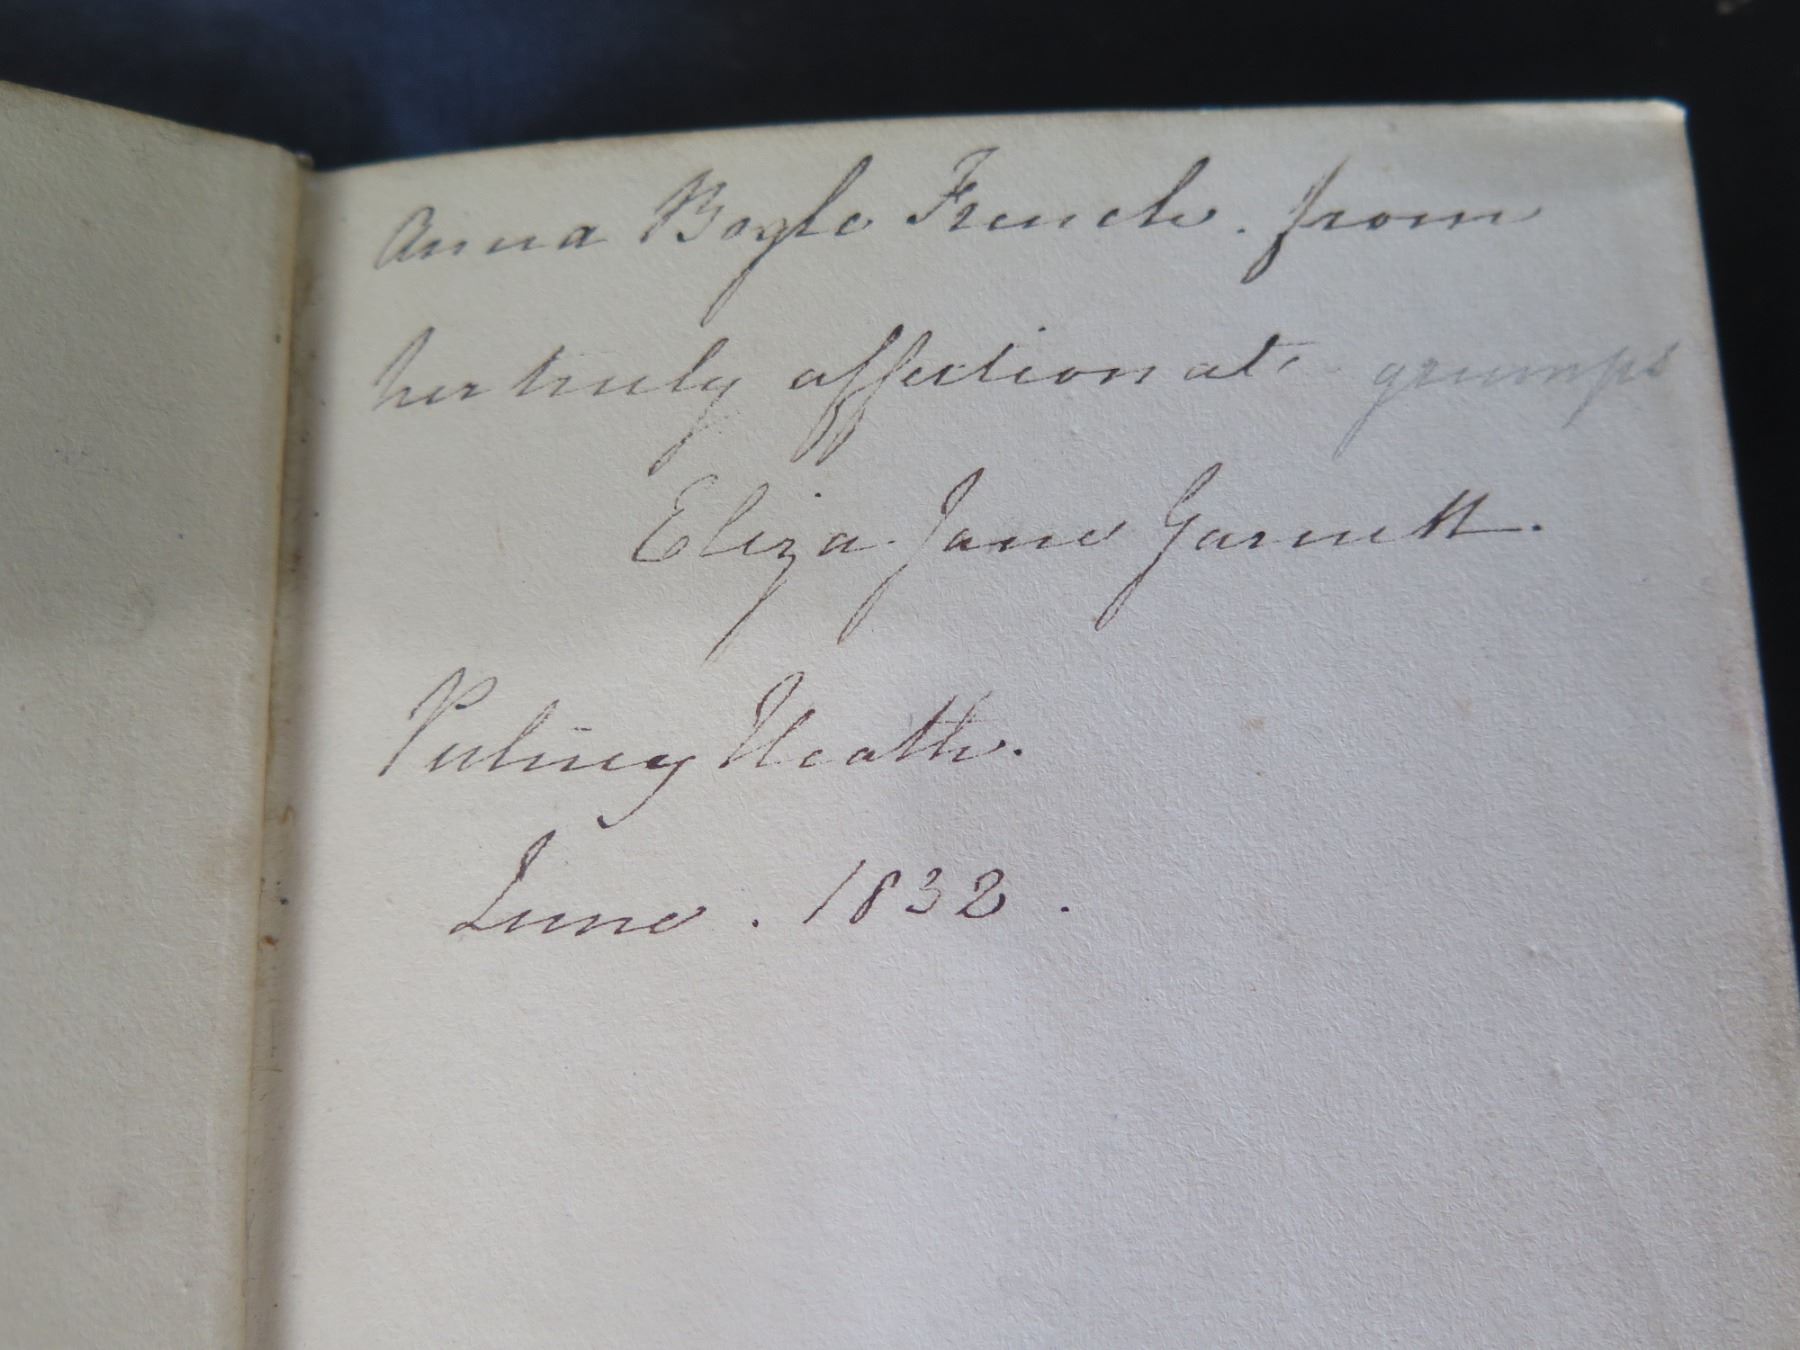 Anna Bogle French. from
her truly affectionate grumps
Eliza Jane Garnett.
Putney Heath.
June. 1832.